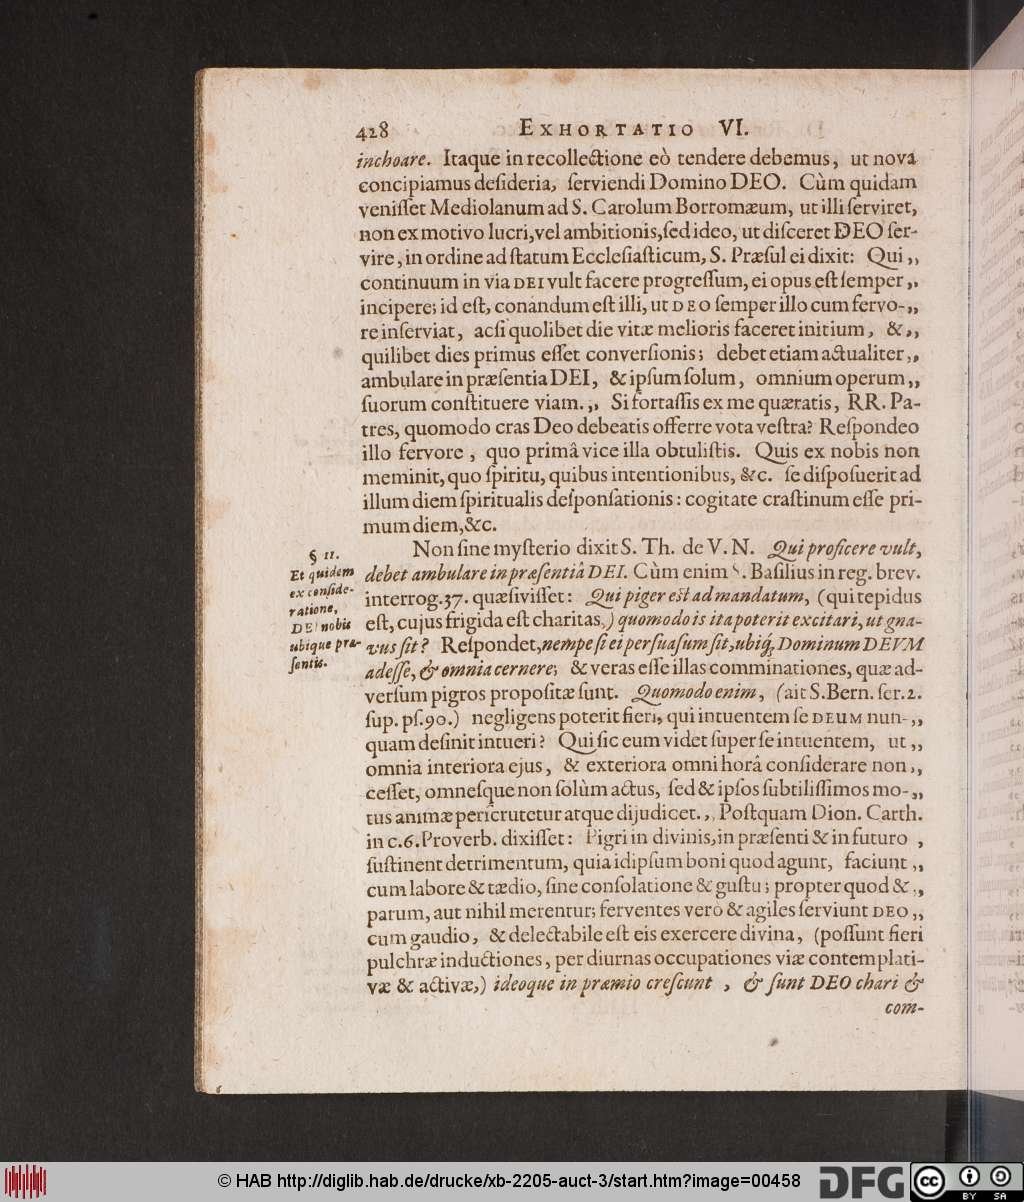 428 EXHORTATIO VI.
inchoare. Itaque in recollectione eò tendere debemus, ut nova
concipiamus desideria, serviendi Domino DEO. Cùm quidam
venisset Mediolanum ad S. Carolum Borromæum, ut illi serviret,
non ex motivo lucri, vel ambitionis, sed ideo, ut disceret DEO ser-
vire, in ordine ad statum Ecclesiasticum, S. Præsul ei dixit: Qui „
continuum in via DEI vult facere progressum, ei opus est semper „
incipere; id est, conandum est illi, ut DEO semper illo cum fervo- „
re inserviat, acsi quolibet die vitæ melioris faceret initium, & „
quilibet dies primus esset conversionis; debet etiam actualiter „
ambulare in præsentia DEI, & ipsum solum, omnium operum „
suorum constituere viam. „ Si fortassis ex me quæratis, RR. Pa-
tres, quomodo cras Deo debeatis offerre vota vestra? Respondeo
illo fervore, quo primâ vice illa obtulistis. Quis ex nobis non
meminit, quo spiritu, quibus intentionibus, &c. se disposuerit ad
illum diem spiritualis desponsationis: cogitate crastinum esse pri-
mum diem, &c.
§ 11.
Et quidem
ex conside-
ratione,
DEI nobis
ubique præ-
sentis.
Non sine mysterio dixit S. Th. de V. N. Qui proficere vult,
debet ambulare in præsentiâ DEI. Cùm enim S. Basilius in reg. brev.
interrog. 37. quæsivisset: Qui piger est ad mandatum, (qui tepidus
est, cujus frigida est charitas,) quomodo is ita poterit excitari, ut gna-
vus sit? Respondet, nempe si ei persuasum sit, ubiq; Dominum DEVM
adesse, & omnia cernere; & veras esse illas comminationes, quæ ad-
versùm pigros propositæ sunt. Quomodo enim, (ait S. Bern. ser. 2.
sup. ps. 90.) negligens poterit fieri, qui intuentem se DEUM nun- „
quam desinit intueri? Qui sic eum videt super se intuentem, ut „
omnia interiora ejus, & exteriora omni horâ considerare non „
cesset, omnesque non solùm actus, sed & ipsos subtilissimos mo- „
tus animæ perscrutetur atque dijudicet. „ Postquam Dion. Carth.
in c. 6. Proverb. dixisset: Pigri in divinis, in præsenti & in futuro ,
sustinent detrimentum, quia idipsum boni quod agunt, faciunt „
cum labore & tædio, sine consolatione & gustu; propter quod & „
parum, aut nihil merentur; ferventes verò & agiles serviunt DEO „
cum gaudio, & delectabile est eis exercere divina, (possunt fieri
pulchræ inductiones, per diurnas occupationes viæ contemplati-
væ & activæ,) ideoque in præmio crescunt, & sunt DEO chari &
com-
© HAB http://diglib.hab.de/drucke/xb-2205-auct-3/start.htm?image=00458
DFG
cc
BY SA